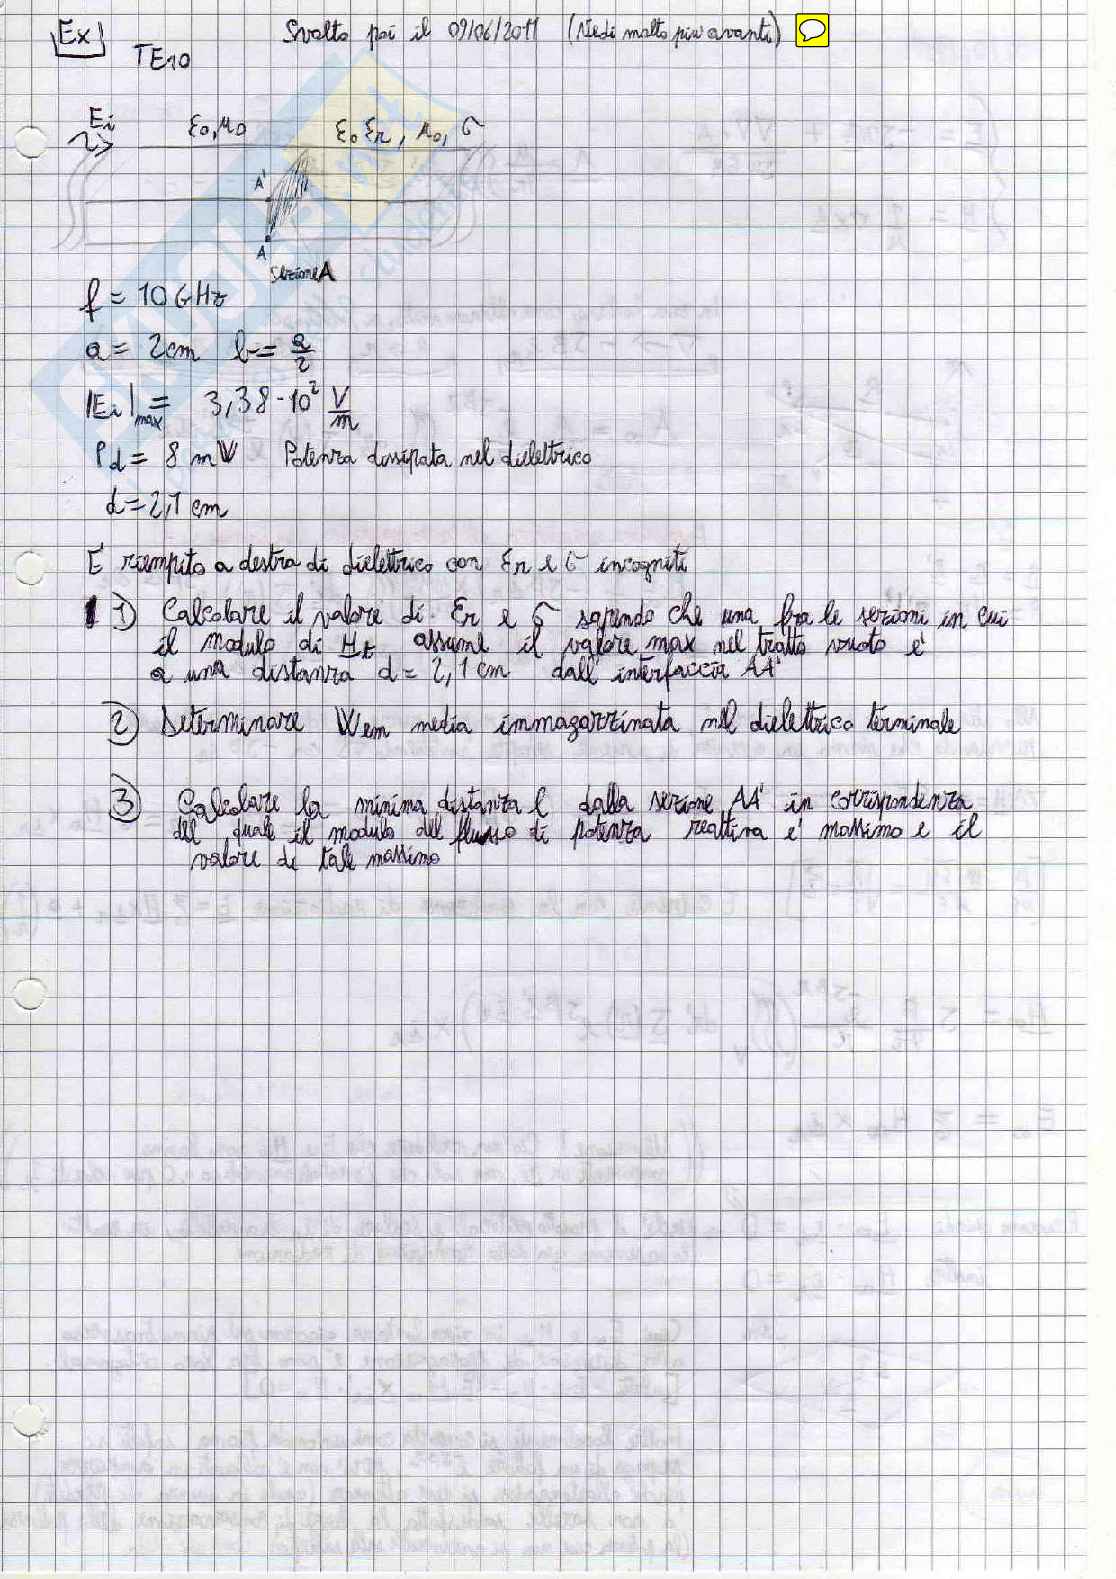 Ex
Svolto poi il 09/06/2011 (Vedi molto più avanti)
TE10
Ei
ε0, μ0
ε0 εr, μ0, σ
A'
A
sezione A
f = 10 GHz
a = 2cm b = a/2
|Ei|max = 3,38 · 10² V/m
Pd = 8 mW Potenza dissipata nel dielettrico
d = 2,1 cm
È riempito a destra di dielettrico con εr e σ incogniti
1) Calcolare il valore di εr e σ sapendo che una fra le sezioni in cui
il modulo di Ht assume il valore max nel tratto vuoto è
a una distanza d = 2,1 cm dall'interfaccia AA'
2) Determinare Wem media immagazzinata nel dielettrico terminale
3) Calcolare la minima distanza l dalla sezione AA' in corrispondenza
del quale il modulo del flusso di potenza reattiva è massimo e il
valore di tale massimo